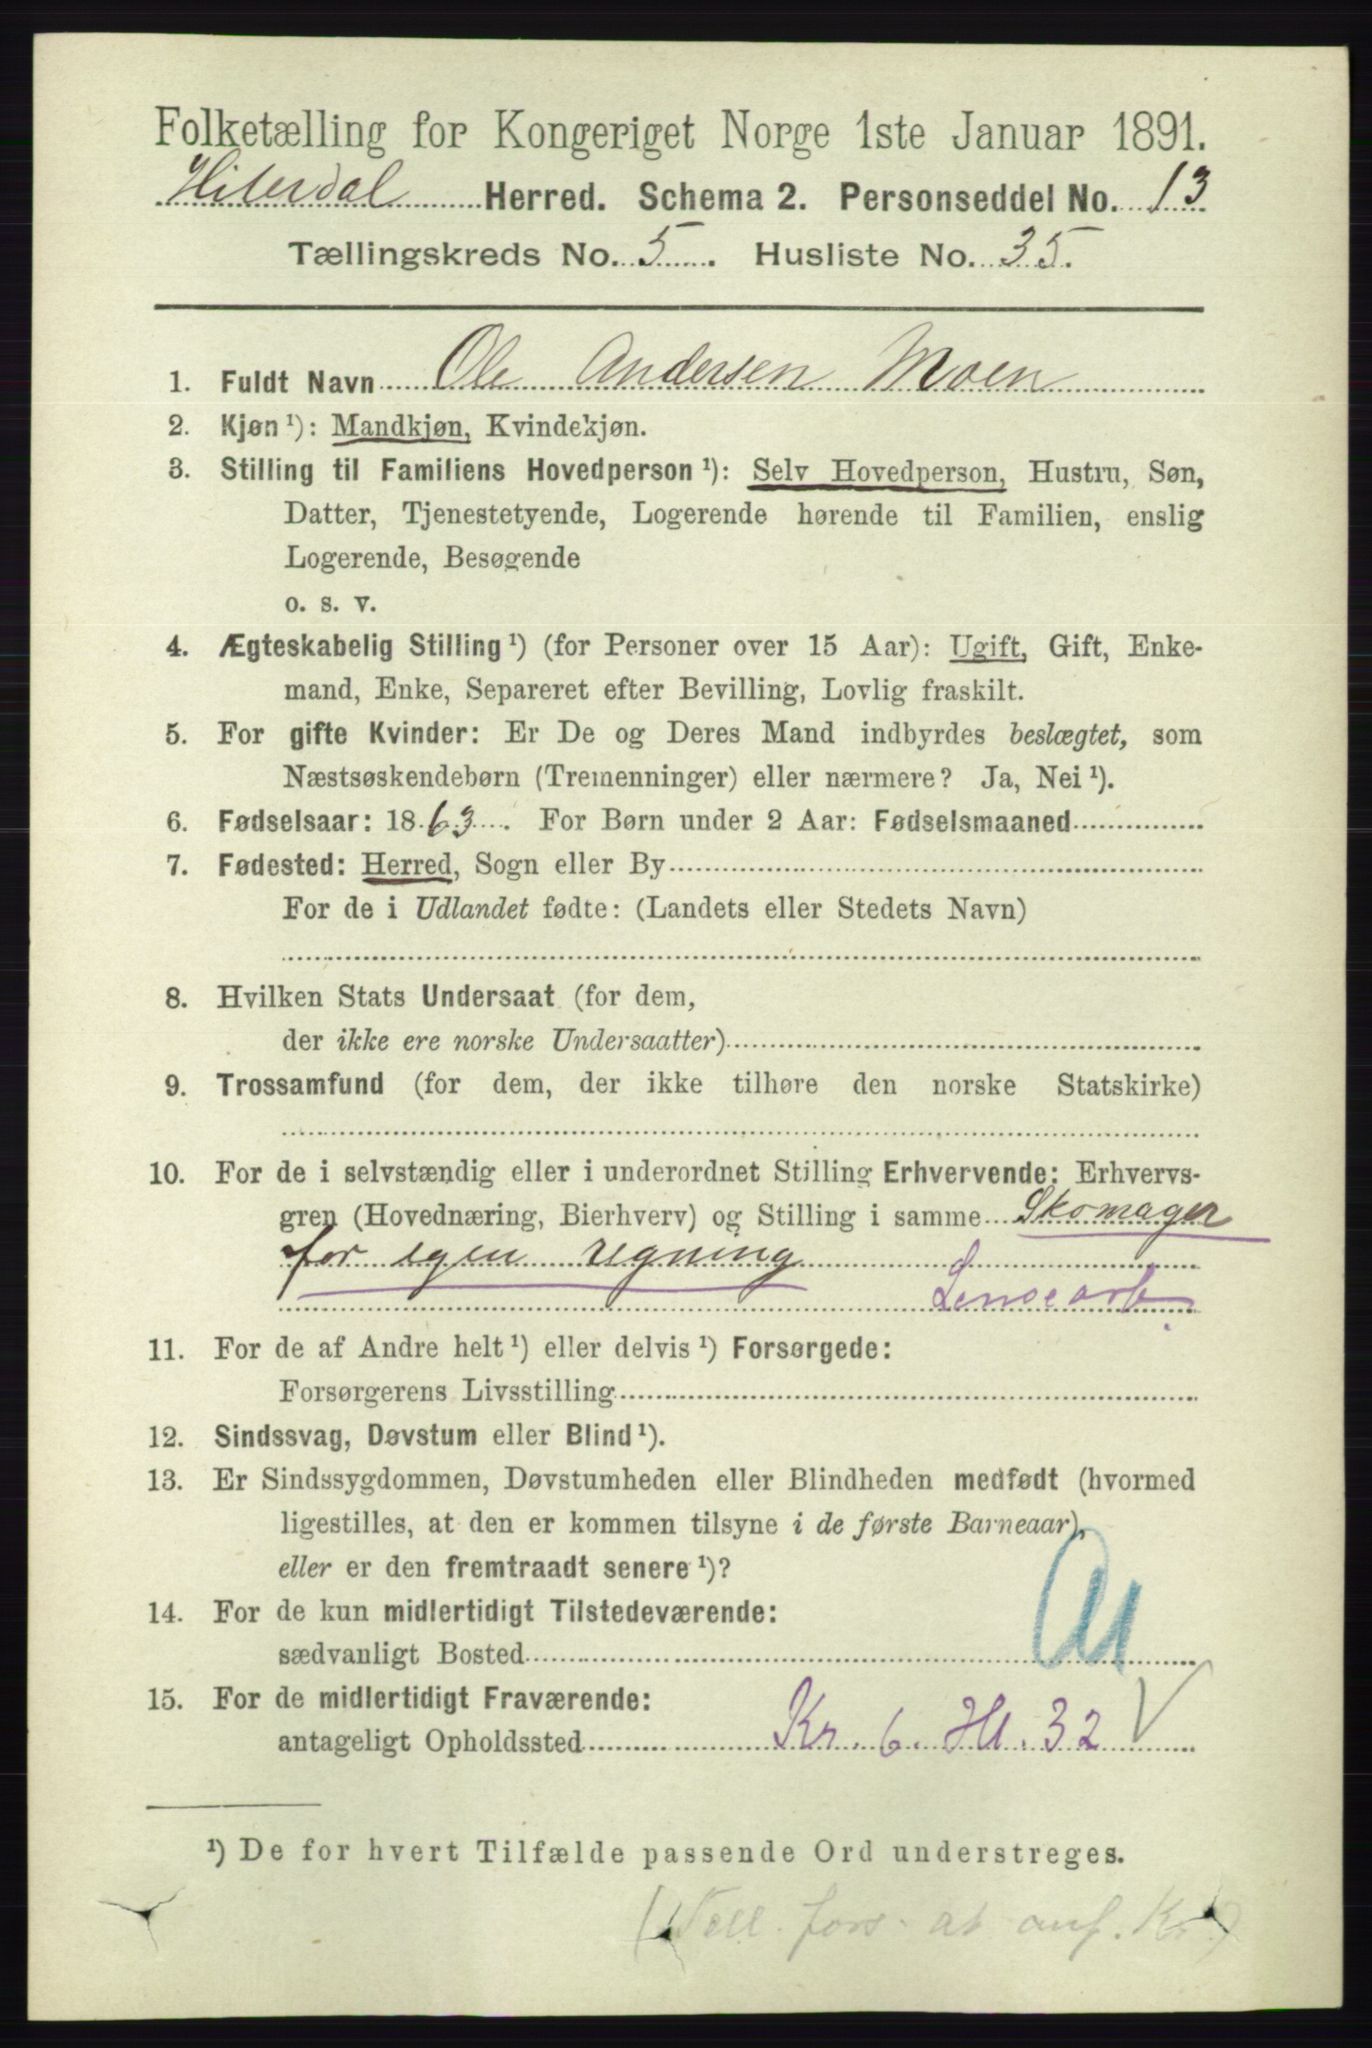 Folketælling for Kongeriget Norge 1ste Januar 1891.
Hiterdal Herred. Schema 2. Personseddel No. 13
Tællingskreds No. 5. Husliste No. 35.
1. Fuldt Navn Ole Andersen Moen
2. Kjøn ¹): Mandkjøn, Kvindekjøn.
3. Stilling til Familiens Hovedperson ¹): Selv Hovedperson, Hustru, Søn,
Datter, Tjenestetyende, Logerende hørende til Familien, enslig
Logerende, Besøgende
o. s. v.
4. Ægteskabelig Stilling ¹) (for Personer over 15 Aar): Ugift, Gift, Enke-
mand, Enke, Separeret efter Bevilling, Lovlig fraskilt.
5. For gifte Kvinder: Er De og Deres Mand indbyrdes beslægtet, som
Næstsøskendebørn (Tremenninger) eller nærmere? Ja, Nei ¹).
6. Fødselsaar: 1863. For Børn under 2 Aar: Fødselsmaaned
7. Fødested: Herred, Sogn eller By
For de i Udlandet fødte: (Landets eller Stedets Navn)
8. Hvilken Stats Undersaat (for dem,
der ikke ere norske Undersaatter)
9. Trossamfund (for dem, der ikke tilhøre den norske Statskirke)
10. For de i selvstændig eller i underordnet Stilling Erhvervende: Erhvervs-
gren (Hovednæring, Bierhverv) og Stilling i samme Skomager
for egen regning
Lensearb.
11. For de af Andre helt ¹) eller delvis ¹) Forsørgede:
Forsørgerens Livsstilling
12. Sindssvag, Døvstum eller Blind ¹).
13. Er Sindssygdommen, Døvstumheden eller Blindheden medfødt (hvormed
ligestilles, at den er kommen tilsyne i de første Barneaar),
eller er den fremtraadt senere ¹)?
14. For de kun midlertidigt Tilstedeværende:
sædvanligt Bosted
15. For de midlertidigt Fraværende:
antageligt Opholdssted Kr. 6. Hl. 32 V
¹) De for hvert Tilfælde passende Ord understreges.
(Tell. fors. at anf. Kr.)